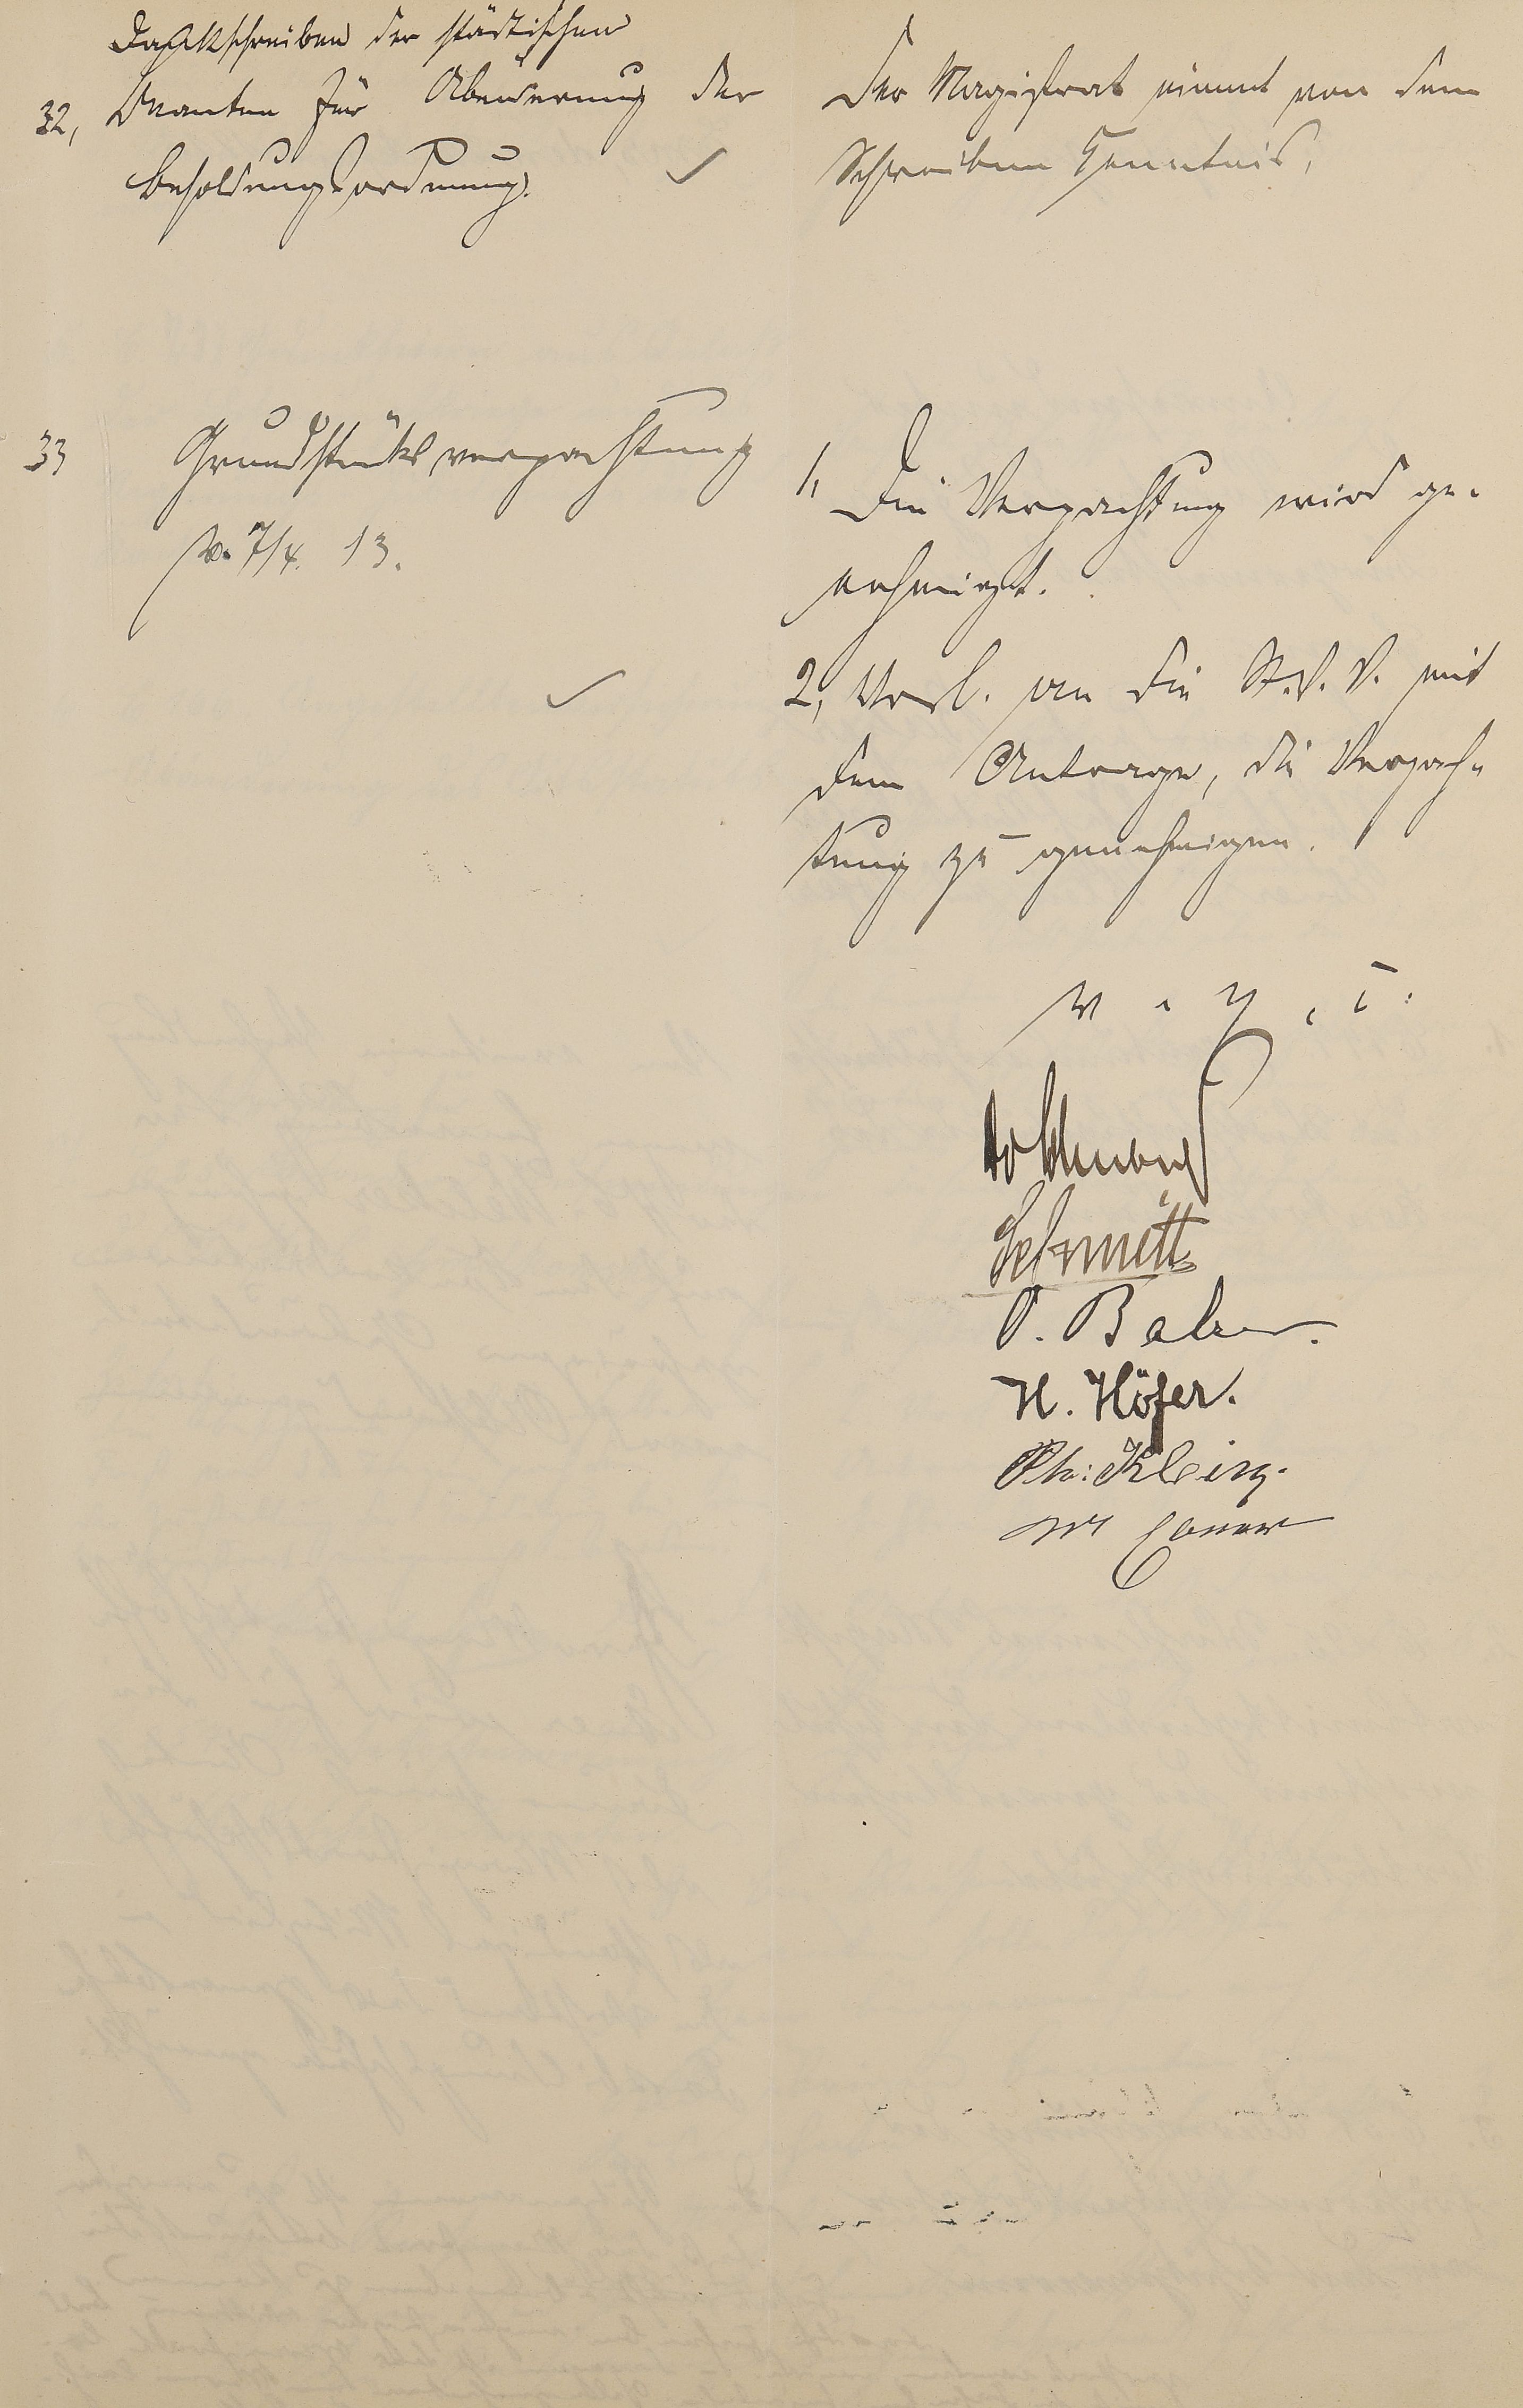 Dankschreiben der städtischen
32, Beamten für Abänderung der
Besoldungsordnung.
Der Magistrat nimmt von dem
Schreiben Kenntnis.
33 Grundstücksverpachtung
v. 7/4. 13.
1, Die Verpachtung wird ge-
nehmigt.
2, Vorl. an die St. V. V. mit
dem Antrage, die Verpach-
tung zu genehmigen.
v. g. u.
Schmitt
H. Höfer.
Ph: Klein.